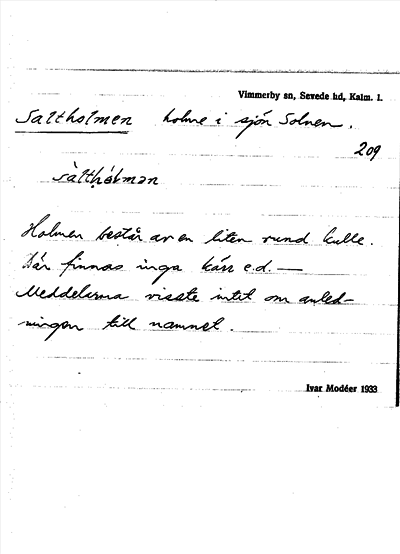 Vimmerby sn, Sevede hd, Kalm. l.
Saltholmen holme i sjön Solnen.
209
sàlthólmən
Holmen består av en liten rund kulle.
Där finnas inga kärr e.d. —
Meddelarna visste intet om anled-
ningen till namnet.
Ivar Modéer 1933